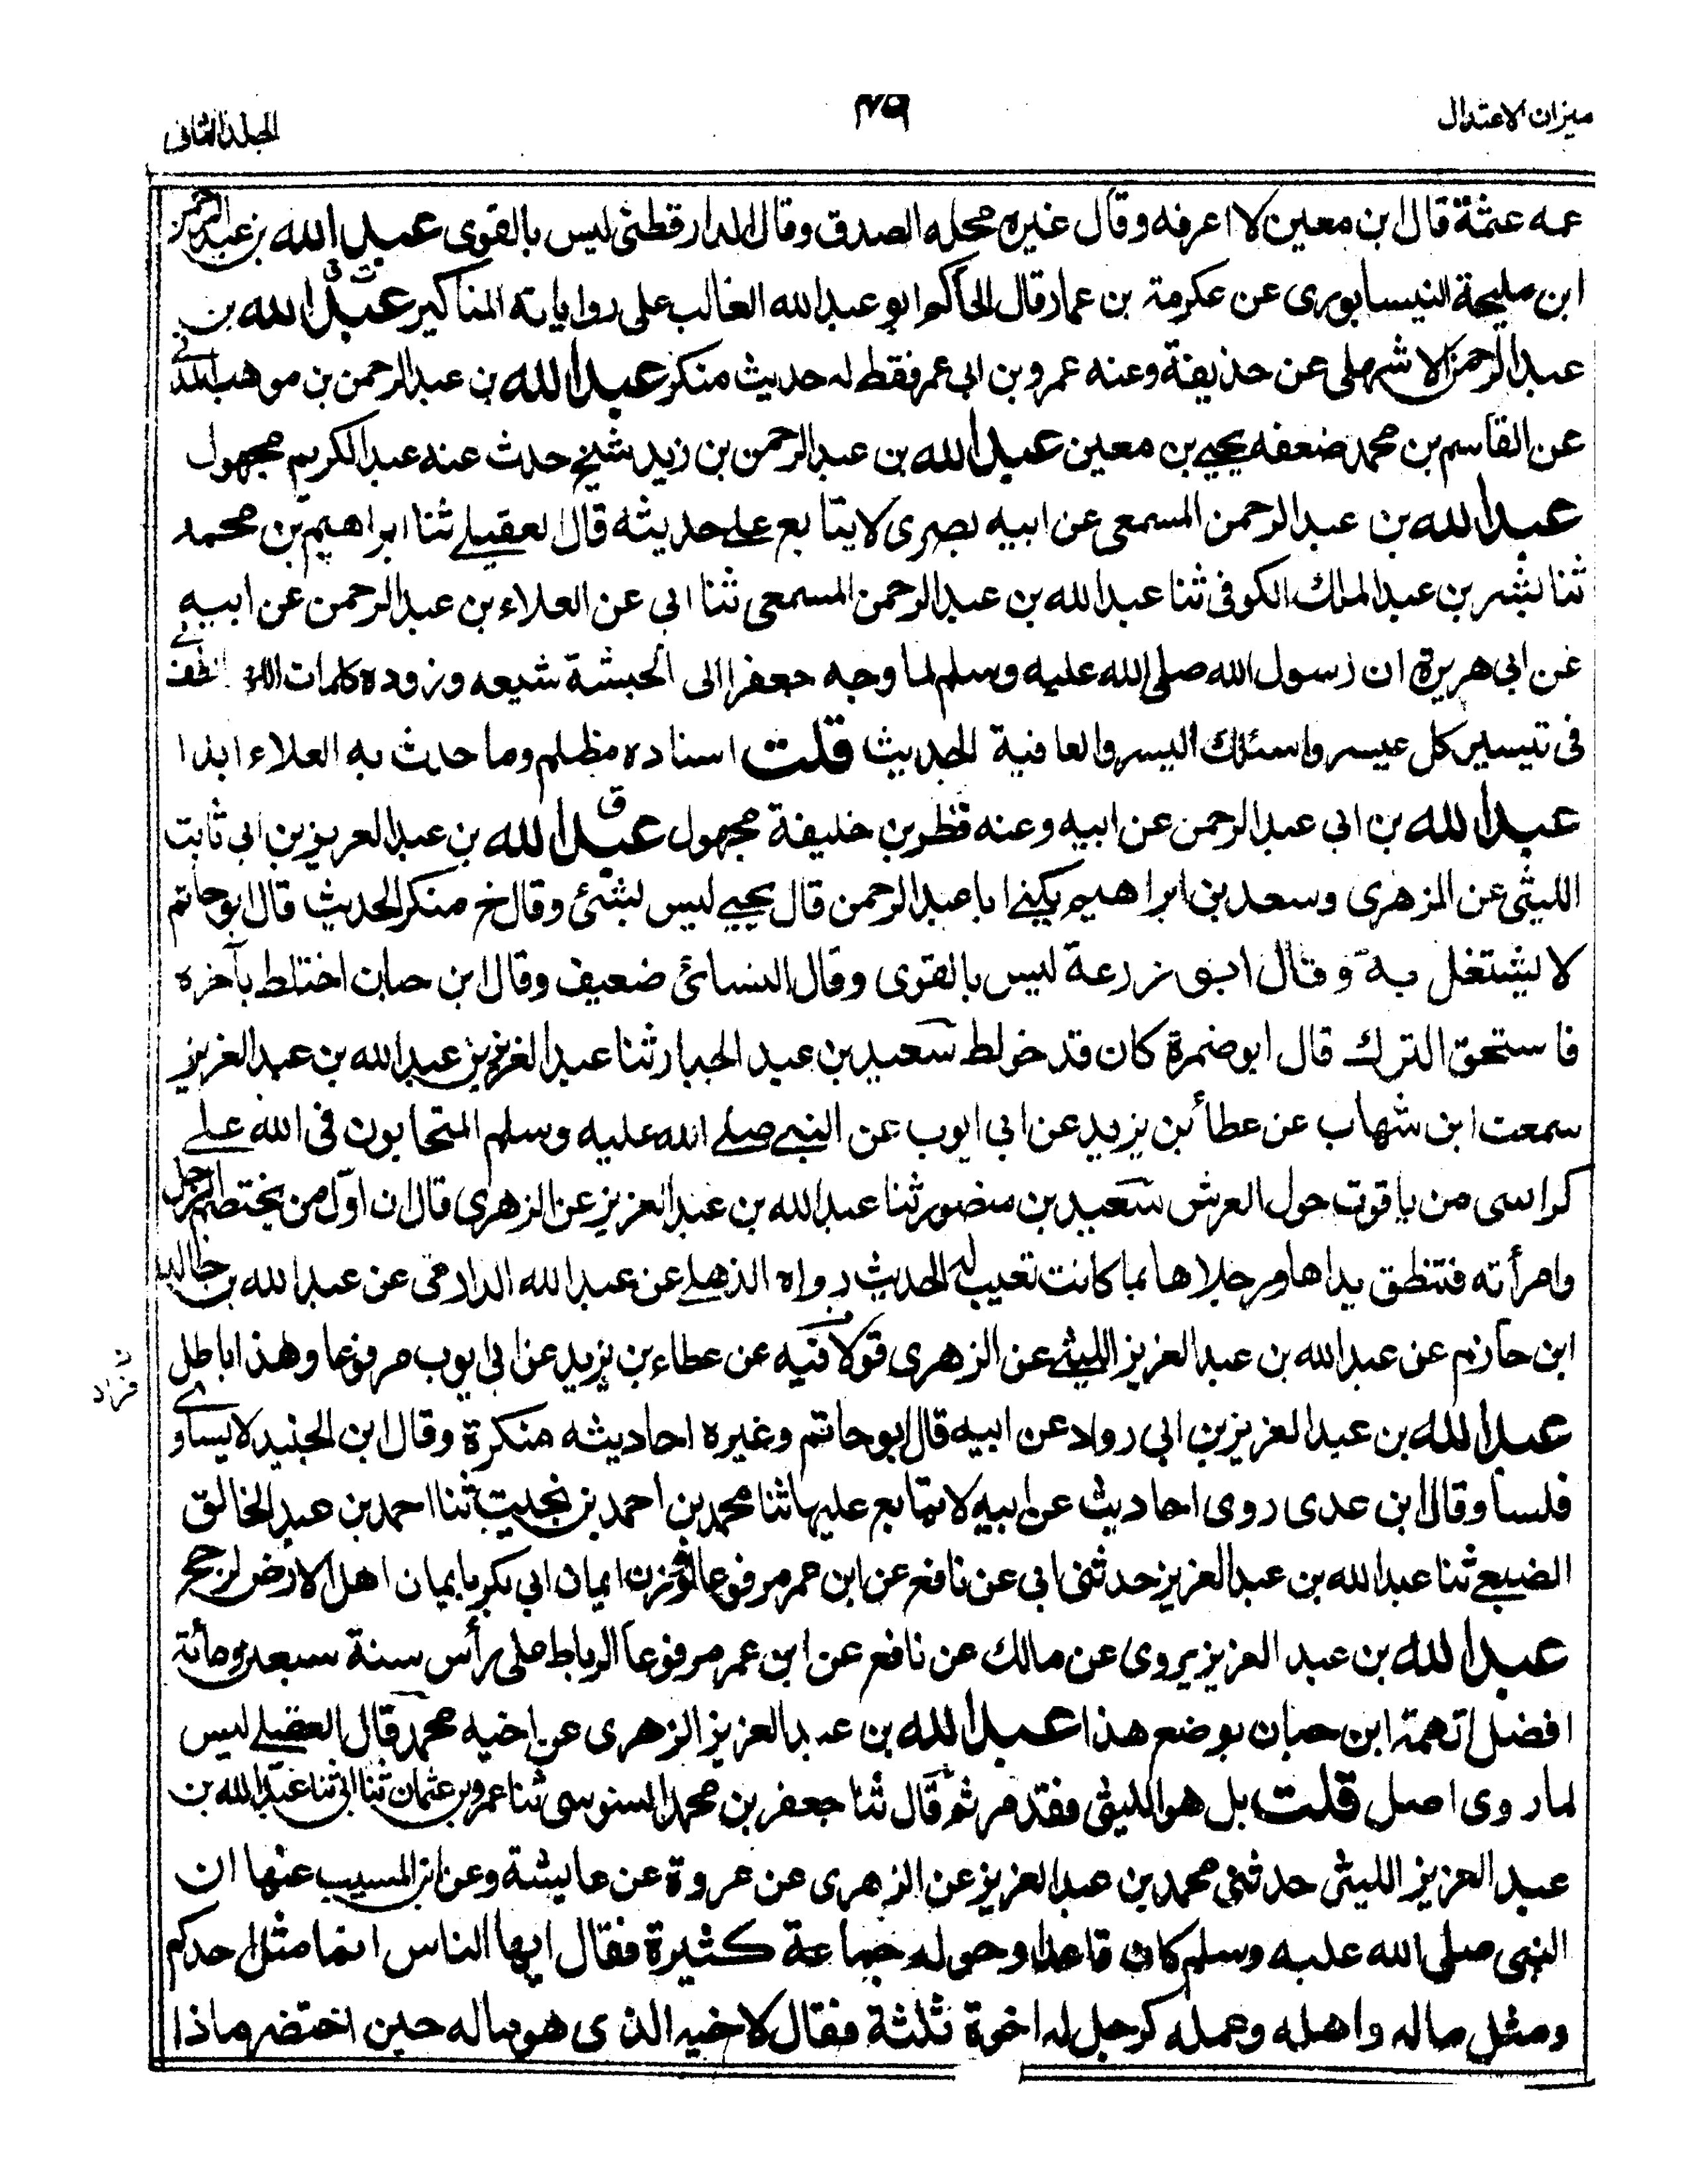 ميزان الاعتدال
٤٧٩
الجلد الثانى
عمه عثمة قال ابن معين لا اعرفه وقال غيره محله الصدق وقال الدارقطنى ليس بالقوى عبد الله بن عبد الرحمن
ابن مليحة النيسابورى عن عكرمة بن عمار قال الحاكم ابو عبد الله الغالب على رواياته المناكير عبد الله بن
عبد الرحمن الاشهلى عن حذيفة وعنه عمرو بن ابى عمر فقط له حديث منكر عبد الله بن عبد الرحمن بن موهب المدنى
عن القاسم بن محمد ضعفه يحيى بن معين عبد الله بن عبد الرحمن بن زيد شيخ حدث عنه عبد الكريم مجهول
عبد الله بن عبد الرحمن المسمعى عن ابيه بصرى لا يتابع على حديثه قال العقيلى ثنا ابراهيم بن محمد
ثنا بشر بن عبد الملك الكوفى ثنا عبد الله بن عبد الرحمن المسمعى ثنا ابى عن العلاء بن عبد الرحمن عن ابيه
عن ابى هريرة ان رسول الله صلى الله عليه وسلم لما وجه جعفرا الى الحبشة شيعه وزوده كلمات اللهم الطف
فى تيسير كل عيسر واسئلك اليسر والعافية الحديث قلت اسناده مظلم وما حدث به العلاء ابدا
عبد الله بن ابى عبد الرحمن عن ابيه وعنه فطر بن خليفة مجهول ق عبد الله بن عبد العزيز بن ابى ثابت
الليثى عن الزهرى وسعد بن ابراهيم يكنى ابا عبد الرحمن قال يحيى ليس بشئ وقال خ منكر الحديث قال ابو حاتم
لا يشتغل به وقال ابو زرعة ليس بالقوى وقال النسائى ضعيف وقال ابن حبان اختلط بآخره
فاستحق الترك قال ابو ضمرة كان قد خولط سعيد بن عبد الجبار ثنا عبد العزيز بن عبد الله بن عبد العزيز
سمعت ابن شهاب عن عطاء بن يزيد عن ابى ايوب عن النبى صلى الله عليه وسلم المتحابون فى الله على
كراسى من ياقوت حول العرش سعيد بن منصور ثنا عبد الله بن عبد العزيز عن الزهرى قال ان اوّل من يختصم الرجل
وامرأته فتنطق يداها ورجلاها بما كانت تعيب له الحديث رواه الذهلى عن عبد الله الدارمى عن عبد الله بن خالد
ابن حازم عن عبد الله بن عبد العزيز الليثى عن الزهرى قولا فيه عن عطاء بن يزيد عن ابى ايوب مرفوعا وهذا باطل
عبد الله بن عبد العزيز بن ابى رواد عن ابيه قال ابو حاتم وغيره احاديثه منكرة وقال ابن الجنيد لا يساوى
فلسا وقال ابن عدى روى احاديث عن ابيه لا يتابع عليها ثنا محمد بن احمد بن بخيت ثنا احمد بن عبد الخالق
الضبعى ثنا عبد الله بن عبد العزيز حدثنى ابى عن نافع عن ابن عمر مرفوعا لو وزن ايمان ابى بكر بايمان اهل الارض لرجح
عبد الله بن عبد العزيز يروى عن مالك عن نافع عن ابن عمر مرفوعا الرباط على رأس سنة سبعين ومائة
افضل اتهمه ابن حبان بوضع هذا عبد الله بن عبد العزيز الزهرى عن اخيه محمد قال العقيلى ليس
لما روى اصل قلت بل هو الليثى فقد مر ثم قال ثنا جعفر بن محمد السنوسى ثنا عمرو بن عثمان ثنا ابى ثنا عبد الله بن
عبد العزيز الليثى حدثنى محمد بن عبد العزيز عن الزهرى عن عروة عن عايشة وعن ابن المسيب عنها ان
النبى صلى الله عليه وسلم كان قاعدا وحوله جماعة كثيرة فقال ايها الناس انما مثل احدكم
ومثل ماله واهله وعمله كرجل له اخوة ثلثة فقال لاخيه الذى هو ماله حين احتضر ماذا